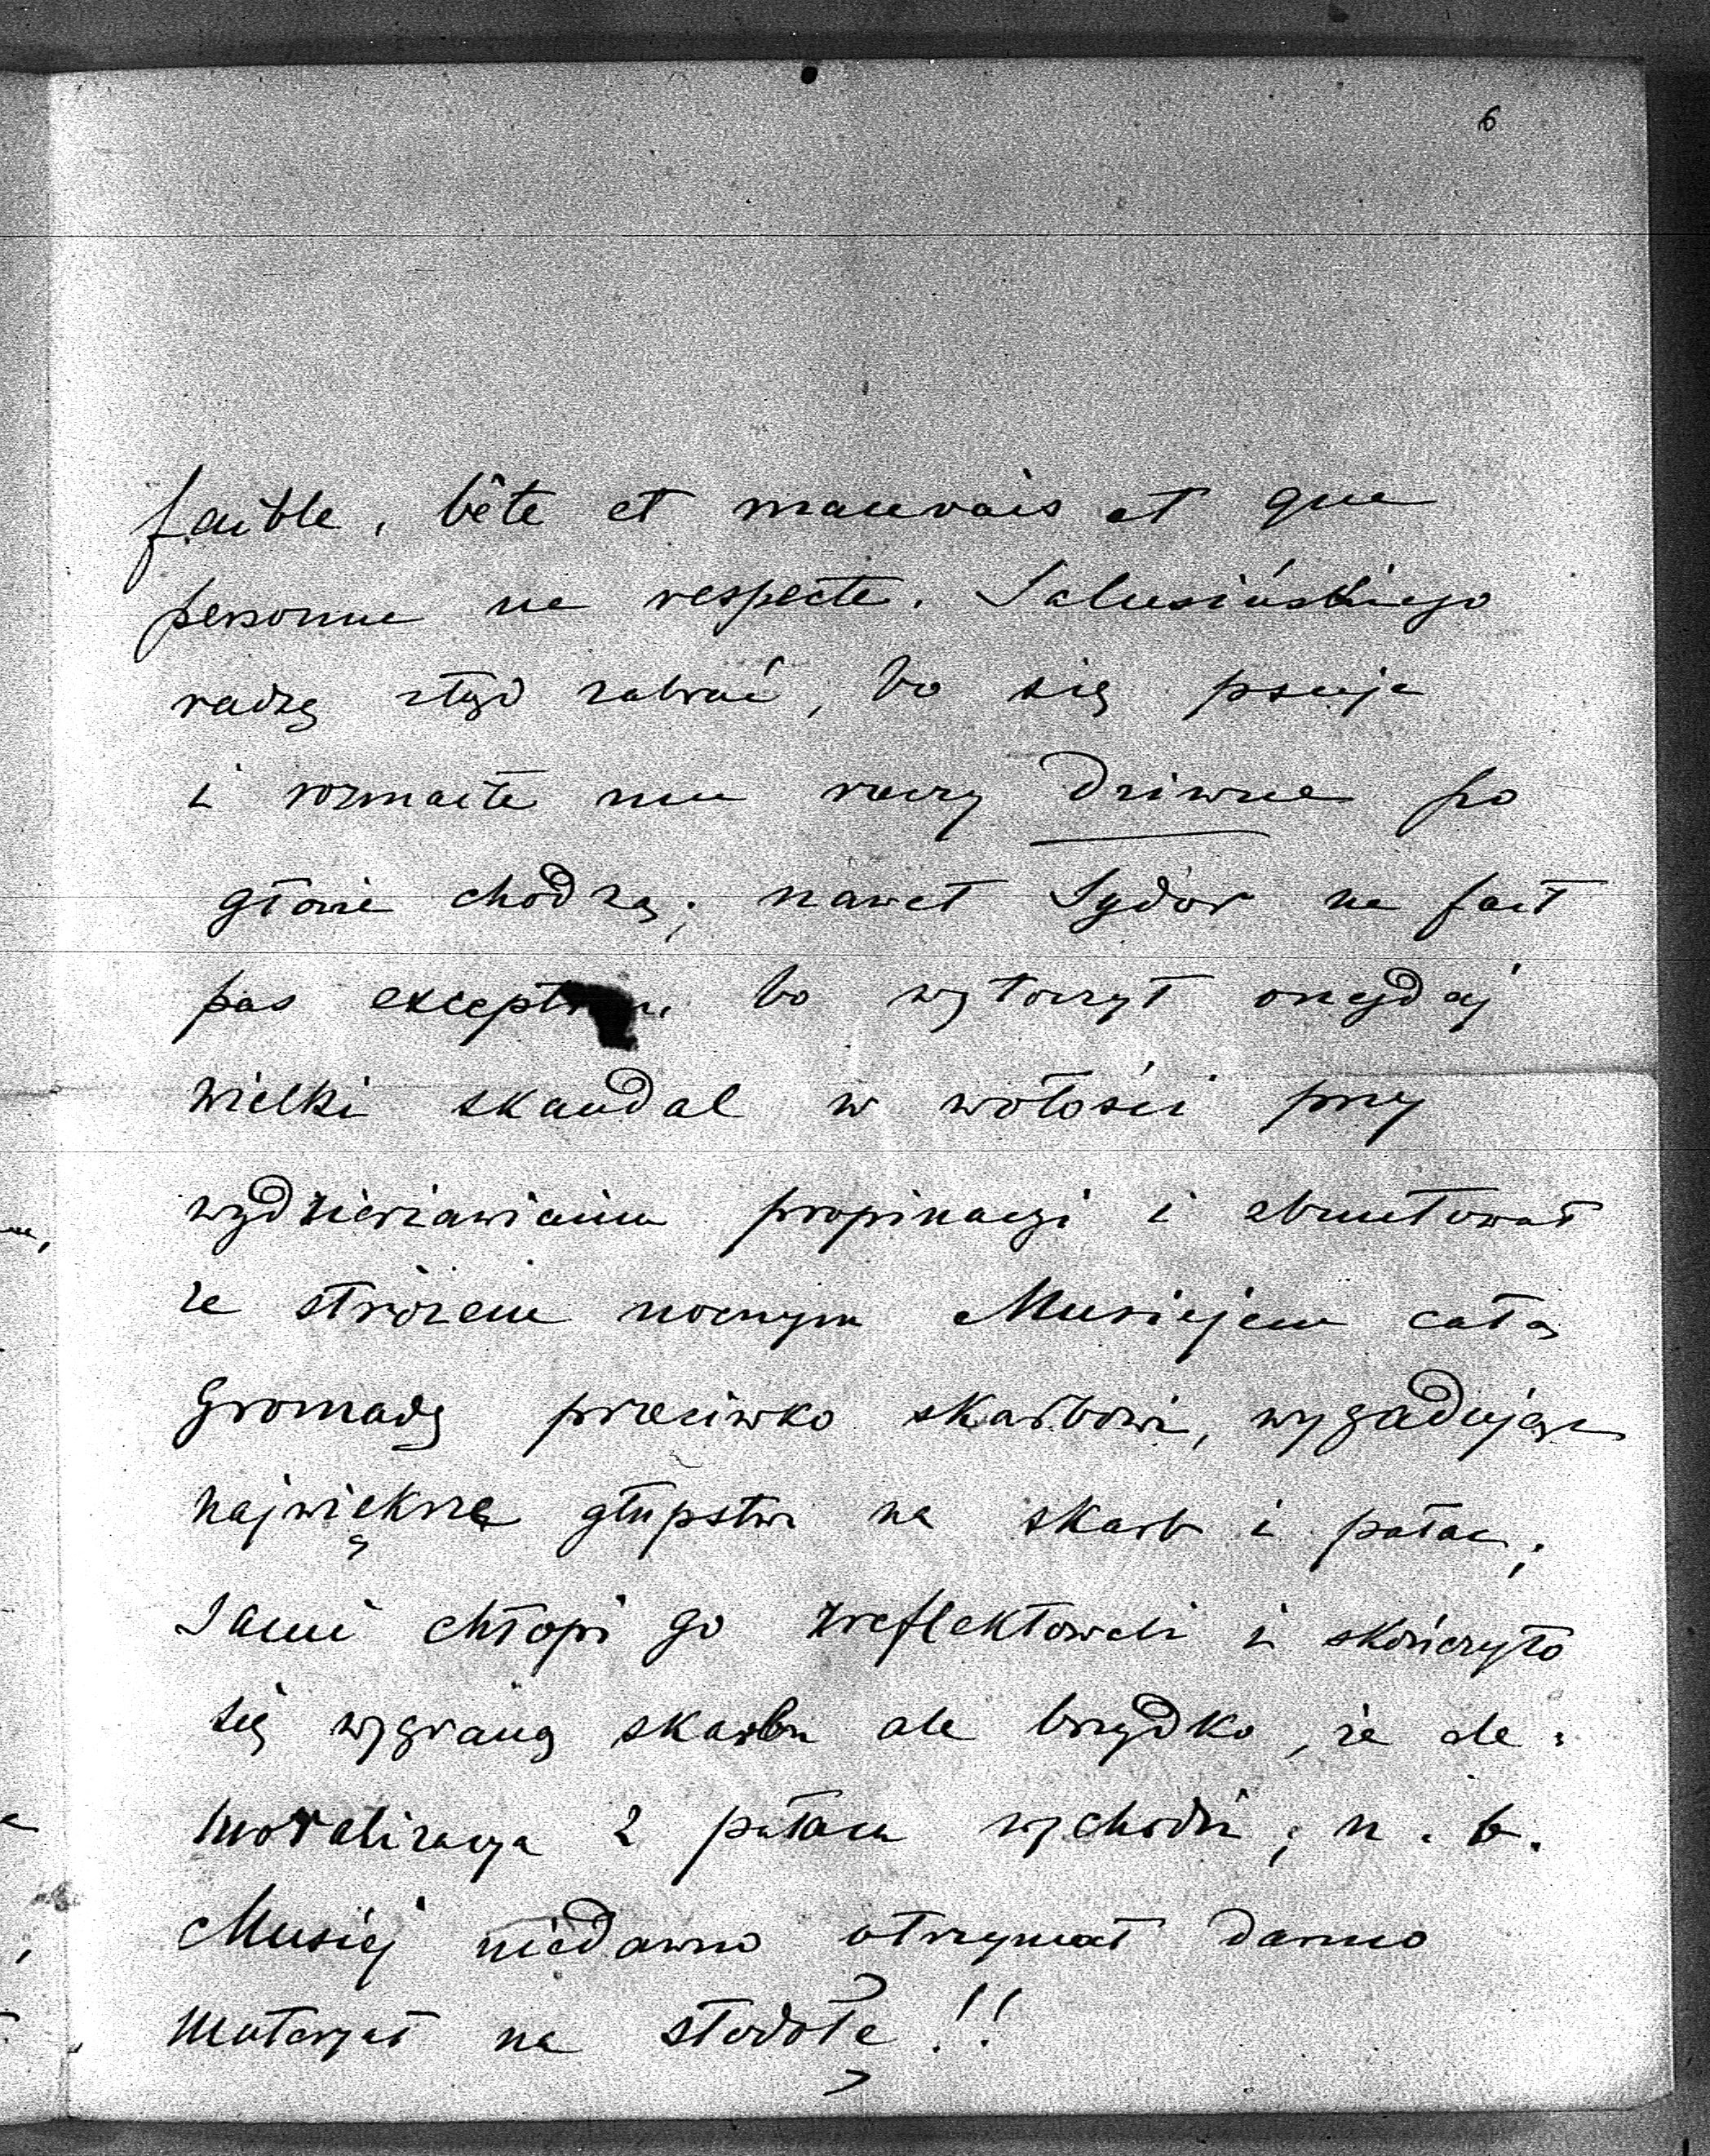 6
faible, bête et mauvais et que
personne ne respecte. Salusińskiego
radzę ztąd zabrać, bo się psuje
i rozmaite mu rzeczy dziwne po
głowie chodzą; nawet Sydor ne fait
pas exception, bo wytoczył onegdaj
wielki skandal w wołości przy
wydzierżawianiu propinacyi i zbuntował
ze stróżem nocnym Musiejem całą
gromadę przeciwko skarbowi, wygadując
największe głupstwa na skarb i pałac;
sami chłopi go zreflektowali i skończyło
się wygraną skarbu ale brzydko, że de-
moralizacya z pałacu wychodzi; n. b.
Musiej niedawno otrzymał darmo
materyał na stodołę!!